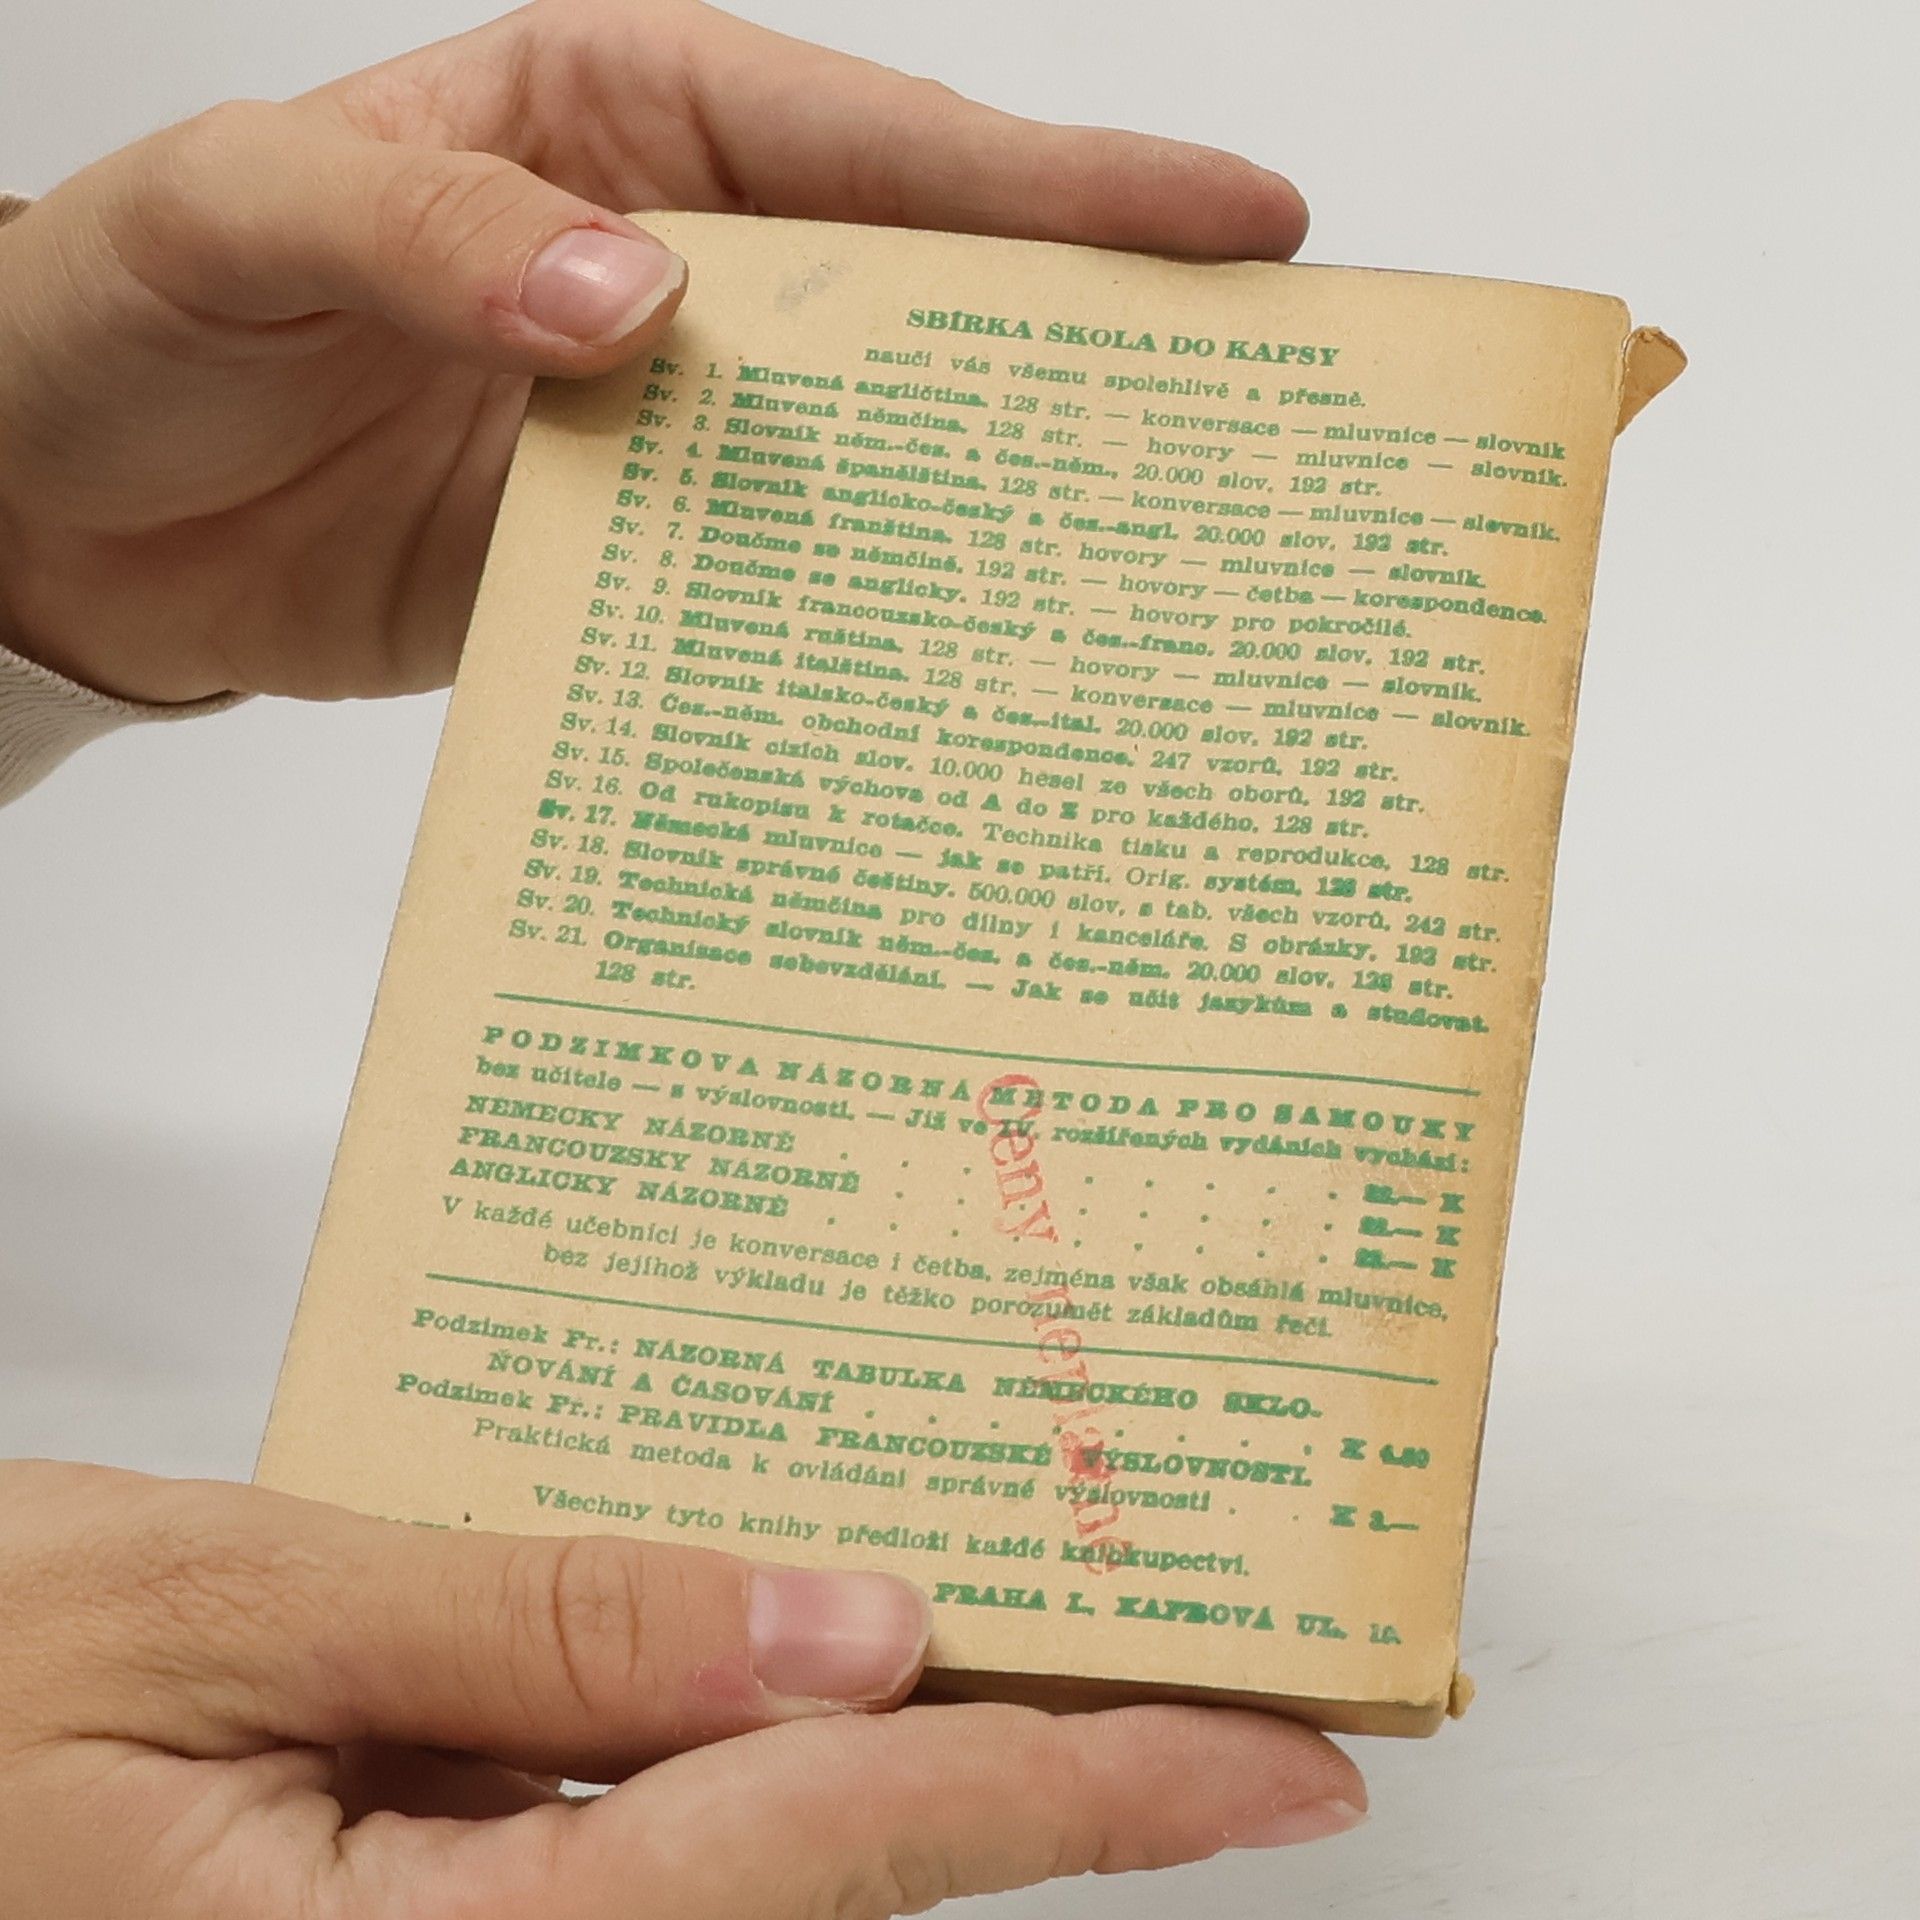 SBÍRKA ŠKOLA DO KAPSY
naučí vás všemu spolehlivě a přesně.
Sv. 1. Mluvená angličtina. 128 str. — konversace — mluvnice — slovník
Sv. 2. Mluvená němčina. 128 str. — hovory — mluvnice — slovník.
Sv. 3. Slovník něm.-čes. a čes.-něm., 20.000 slov. 192 str.
Sv. 4. Mluvená španělština. 128 str. — konversace — mluvnice — slovník.
Sv. 5. Slovník anglicko-český a čes.-angl. 20.000 slov. 192 str.
Sv. 6. Mluvená franština. 128 str. hovory — mluvnice — slovník.
Sv. 7. Doučme se němčině. 192 str. — hovory — četba — korespondence.
Sv. 8. Doučme se anglicky. 192 str. — hovory pro pokročilé.
Sv. 9. Slovník francouzsko-český a čes.-franc. 20.000 slov. 192 str.
Sv. 10. Mluvená ruština. 128 str. — hovory — mluvnice — slovník.
Sv. 11. Mluvená italština. 128 str. — konversace — mluvnice — slovník.
Sv. 12. Slovník italsko-český a čes.-ital. 20.000 slov. 192 str.
Sv. 13. Čes.-něm. obchodní korespondence. 247 vzorů. 192 str.
Sv. 14. Slovník cizích slov. 10.000 hesel ze všech oborů. 192 str.
Sv. 15. Společenská výchova od A do Z pro každého. 128 str.
Sv. 16. Od rukopisu k rotačce. Technika tisku a reprodukce. 128 str.
Sv. 17. Německá mluvnice — jak se patří. Orig. systém. 128 str.
Sv. 18. Slovník správné češtiny. 500.000 slov, s tab. všech vzorů. 242 str.
Sv. 19. Technická němčina pro dílny i kanceláře. S obrázky. 192 str.
Sv. 20. Technický slovník něm.-čes. a čes.-něm. 20.000 slov. 128 str.
Sv. 21. Organisace sebevzdělání. — Jak se učit jazykům a studovat.
128 str.
PODZIMKOVA NÁZORNÁ METODA PRO SAMOUKY
bez učitele — s výslovností. — Již ve IV. rozšířených vydáních vychází:
NĚMECKY NÁZORNĚ . . . . . . . . . — K
FRANCOUZSKY NÁZORNĚ . . . . . . . . — K
ANGLICKY NÁZORNĚ . . . . . . . . . — K
V každé učebnici je konversace i četba, zejména však obsáhlá mluvnice,
bez jejíhož výkladu je těžko porozumět základům řeči.
Podzimek Fr.: NÁZORNÁ TABULKA NĚMECKÉHO SKLO-
ŇOVÁNÍ A ČASOVÁNÍ . . . . . . . . K 4.80
Podzimek Fr.: PRAVIDLA FRANCOUZSKÉ VÝSLOVNOSTI.
Praktická metoda k ovládání správné výslovnosti . . K 3.—
Všechny tyto knihy předloží každé knihkupectví.
PRAHA I., KAPROVÁ UL. 10.
Ceny neplatné